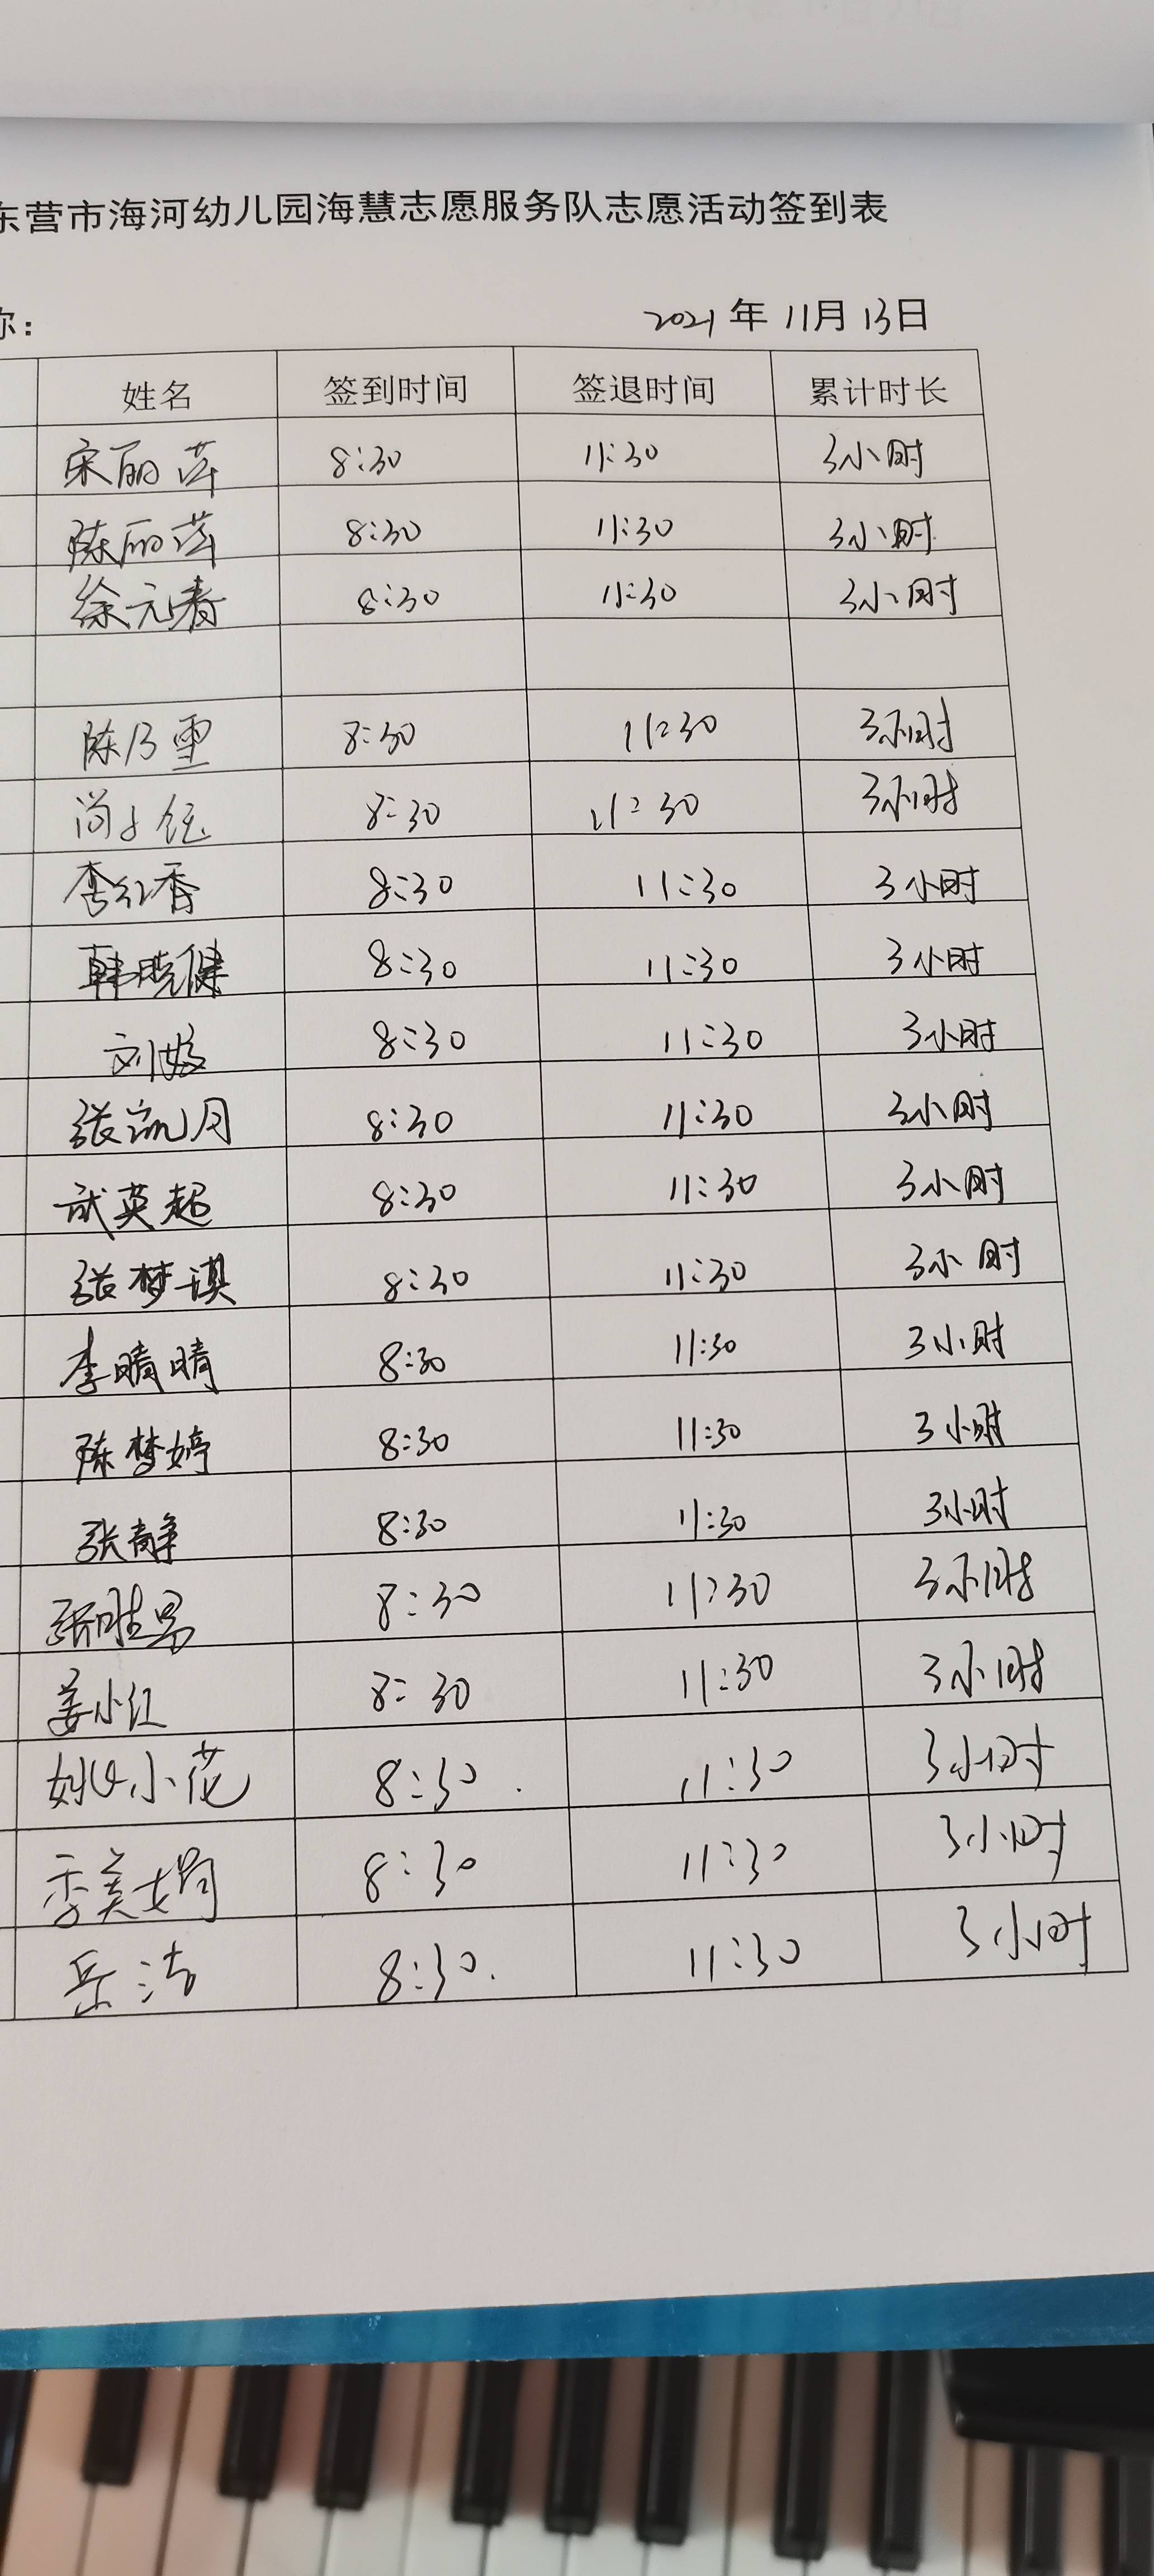 东营市海河幼儿园海慧志愿服务队志愿活动签到表
称: 2021年11月13日
姓名 签到时间 签退时间 累计时长
宋丽萍 8:30 11:30 3小时
陈丽萍 8:30 11:30 3小时
徐元春 8:30 11:30 3小时
陈乃雪 8:30 11:30 3小时
8:30 11:30 3小时
李红香 8:30 11:30 3小时
韩晓健 8:30 11:30 3小时
刘 8:30 11:30 3小时
张凯月 8:30 11:30 3小时
武英超 8:30 11:30 3小时
张梦琪 8:30 11:30 3小时
李晴晴 8:30 11:30 3小时
陈梦婷 8:30 11:30 3小时
张静 8:30 11:30 3小时
张胜男 8:30 11:30 3小时
姜小红 8:30 11:30 3小时
姚小花 8:30 11:30 3小时
季美娟 8:30 11:30 3小时
岳洁 8:30 11:30 3小时